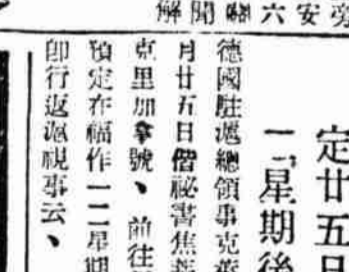 安
六
聞
解
定廿五日
一、星期後
德國駐滬總領事克
月廿五日偕祕書焦
克里加拿號、前往
預定在福作一二星期
卽行返滬視事云、